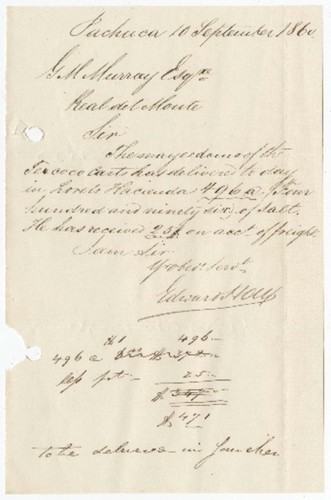 Pachuca 10 September 1860
G. M. Murray Esqre
Real del Monte
Sir
The mayordomo of the
Texcoco Carts has delivered to day
in Loreto Hacienda 496 a. four
hundred and ninety six, of Salt.
He has received 25$ on acct. of freight.
I am Sir
Yr obt. Servt.
Edward
496
496 a $
25
$ 471
to be delivered in